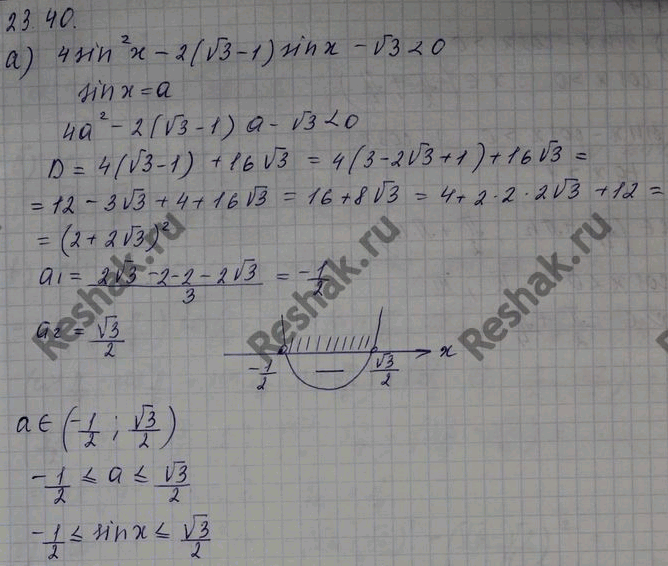 23.40.
а) 4sin²x − 2(√3−1)sinx − √3 < 0
sinx = a
4a² − 2(√3−1)a − √3 < 0
D = 4(√3−1) + 16√3 = 4(3−2√3+1) + 16√3 =
= 12 − 3√3 + 4 + 16√3 = 16 + 8√3 = 4 + 2·2·2√3 + 12 =
= (2+2√3)²
a₁ = (2√3 −2−2−2√3)/3 = −1/2
a₂ = √3/2
x
−1/2 — √3/2
a ∈ (−1/2 ; √3/2)
−1/2 ≤ a ≤ √3/2
−1/2 ≤ sinx ≤ √3/2
Reshak.ru
Reshak.ru
Reshak.ru